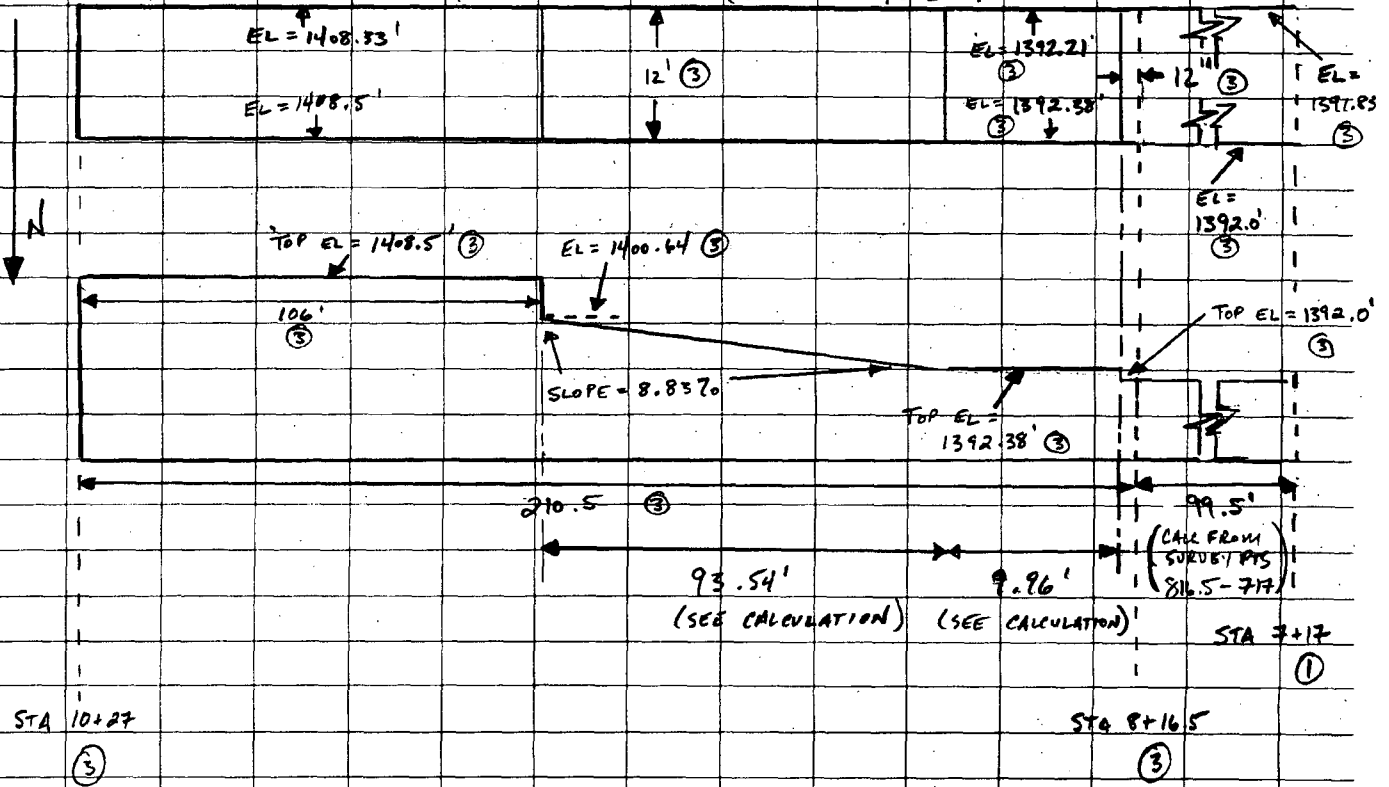 EL = 1408.33'
12' ③
EL = 1392.21'
③
12" ③
EL =
1391.83
③
EL = 1408.5'
EL = 1392.38'
③
EL =
1392.0'
③
N
TOP EL = 1408.5' ③
EL = 1400.64 ③
106'
③
TOP EL = 1392.0'
③
SLOPE = 8.83%
TOP EL =
1392.38' ③
210.5 ③
99.5'
(CALC FROM
SURVEY PTS
816.5-717)
93.54'
(SEE CALCULATION)
9.96'
(SEE CALCULATION)
STA 7+17
①
STA 10+27
③
STA 8+16.5
③